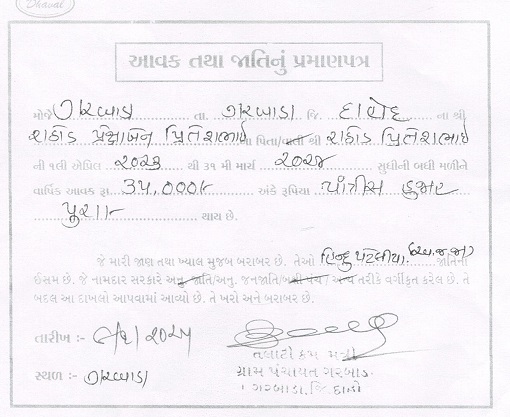 Dhaval
આવક તથા જાતિનું પ્રમાણપત્ર
મોજે ગરબાડા તા. ગરબાડા જિ. દાહોદ ના શ્રી
રાઠોડ પ્રેક્ષાબેન પ્રિતેશભાઇ ના પિતા/વાલી શ્રી રાઠોડ પ્રિતેશભાઇ
ની ૧લી એપ્રિલ ૨૦૨૩ થી ૩૧ મી માર્ચ ૨૦૨૪ સુધીની બધી મળીને
વાર્ષિક આવક રૂા. ૩૫,૦૦૦/- અંકે રૂપિયા પાંત્રીસ હજાર
પુરા/- થાય છે.
જે મારી જાણ તથા ખ્યાલ મુજબ બરાબર છે. તેઓ હિન્દુ પટેલીયા (અ.જ.જા) જાતિની
ઈસમ છે. જે નામદાર સરકારે અનુ. જાતિ/અનુ. જનજાતિ/બક્ષી પંચ / અન્ય તરીકે વર્ગીકૃત કરેલ છે. તે
બદલ આ દાખલો આપવામાં આવ્યો છે. તે ખરો અને બરાબર છે.
તારીખ :- /૨૦૨૫
તલાટી કમ મંત્રી
સ્થળ :- ગરબાડા
ગ્રામ પંચાયત ગરબાડા
ગરબાડા, જિ. દાહો